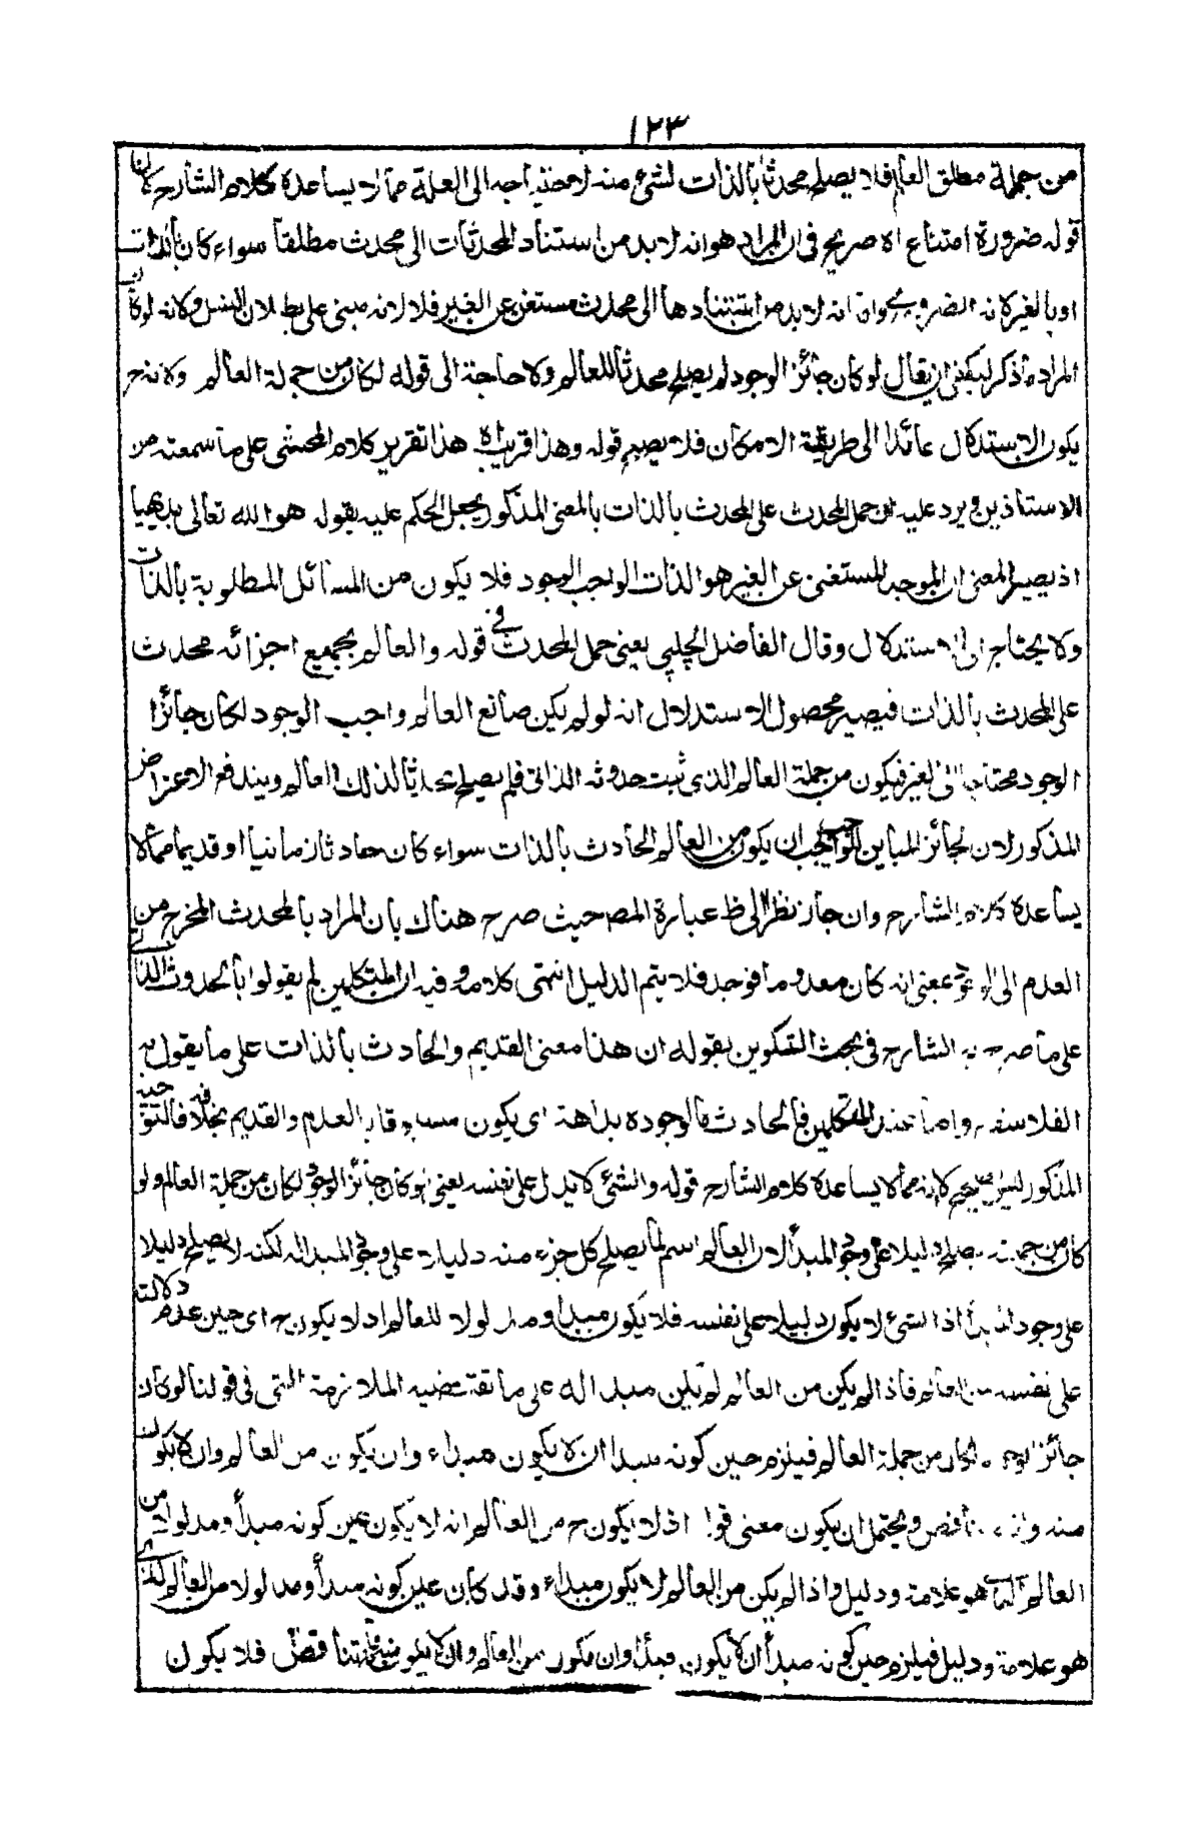 ١٢٣
من جملة مطلق العالم فلا يصلح محدثا بالذات لشئ منه لاحتياجه الى العلة مما لا يساعده كلام الشارح لان
قوله ضرورة امتناع اه صريح فى ان المراد هو انه لا بد من استناد المحدثات الى محدث مطلقا سواء كان بالذات
او بالغير لانه الضرورى واما انه لا بد من استنادها الى محدث مستغن عن الغير فلا لانه مبنى على بطلان التسلسل ولانه لو كان
المراد ما ذكر ليكفى ان يقال لو كان جائز الوجود لم يصلح محدثا للعالم ولا حاجة الى قوله لكان من جملة العالم ولانه ح
يكون الاستدلال عائدا الى طريقة الامكان فلا يصح قوله وهذا قريب اه هذا تقرير كلام المحشى على ما سمعته من
الاستاذين ويرد عليه ان حمل المحدث على المحدث بالذات بالمعنى المذكور يجعل الحكم عليه بقوله هو الله تعالى بديهيا
اذ يصير المعنى ان الموجد المستغنى عن الغير هو الذات الواجب الوجود فلا يكون من المسائل المطلوبة بالذات
ولا يحتاج الى الاستدلال وقال الفاضل الچلپى يعنى حمل المحدث فى قوله والعالم بجميع اجزائه محدث
على المحدث بالذات فيصير محصول الاستدلال انه لو لم يكن صانع العالم واجب الوجود لكان جائز
الوجود محتاجا الى الغير فيكون من جملة العالم الذى ثبت حدوثه الذاتى فلم يصلح محدثا لذلك العالم ويندفع الاعتراض
المذكور لان الجائز المباين للواجب يجب ان يكون من العالم الحادث بالذات سواء كان حادثا زمانيا او قديما مما لا
يساعده كلام الشارح وان جاز نظرا الى ظ عبارة المص حيث صرح هناك بان المراد بالمحدث المخرج من
العدم الى الوجود بمعنى انه كان معدوما فوجد فلا يتم الدليل انتهى كلامه وفيه ان المتكلمين لم يقولوا بالحدوث الذاتى
على ما صرح به الشارح فى بحث التكوين بقوله ان هذا معنى القديم والحادث بالذات على ما يقول به
الفلاسفة واما عند المتكلمين فالحادث ما لوجوده بداهة اى يكون مسبوقا بالعدم والقديم بخلافه فالتوجيه
المذكور ليس بصحيح لانه مما لا يساعده كلام الشارح قوله والشئ لا يدل على نفسه يعنى لو كان جائز الوجود لكان من جملة العالم ولو
كان من جملته يصلح دليلا على وجود المبدأ لان العالم اسم لما يصلح كل جزء منه دليلا على وجود المبدا له لكنه لا يصلح دليلا
على وجود المبدأ اذ الشئ لا يكون دليلا على نفسه فلا يكون مبدا ومدلولا للعالم اذ لا يكون ح اى حين عدم دلالته
على نفسه من العالم فاذا لم يكن من العالم لم يكن مبدا له على ما تقتضيه الملازمة التى فى قولنا لو كان
جائز الوجود لكان من جملة العالم فيلزم حين كونه مبدا ان لا يكون مبداء وان يكون من العالم وان لا يكون
منه وانه تناقض ويحتمل ان يكون معنى قوله اذ لا يكون ح من العالم انه لا يكون حين كونه مبدأ ومدلولا من
العالم هو علامة ودليل واذا لم يكن من العالم لا يكون مبداء وقد كان حين كونه مبدأ ومدلولا من العالم الذى
هو علامة ودليل فيلزم حين كونه مبدأ ان لا يكون مبدأ وان يكون من العالم وان لا يكون منه فتناقض فلا يكون